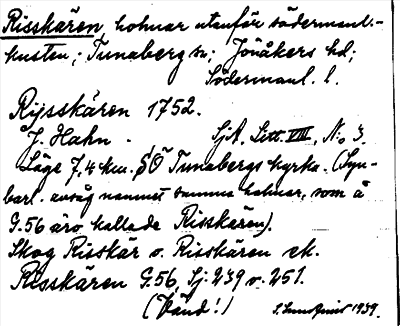 Risskären, holmar utanför södermanl.-
kusten; Tunaberg sn: Jönåkers hd;
Södermanl. l.
Rijsskären 1752.
J. Hahn. SjA, Litt. VIII, No 3.
Läge 7,4 km. SÖ Tunabergs kyrka. (Syn-
barl. avsåg namnet samma holmar, som å
G.56 äro kallade Risskären).
Skog Risskär o. Risskären ek.
Risskären G.56, Sj. 239 o. 251.
(Vänd!) 1939.